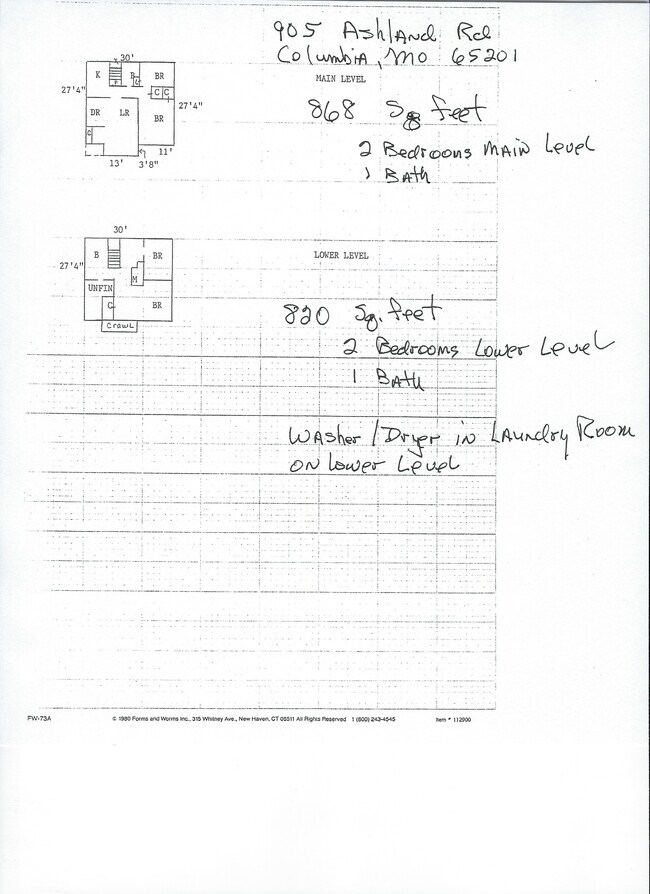 905 Ashland Rd
Columbia, MO 65201
30'
K
B
BR
MAIN LEVEL
27'4"
C C
27'4"
868 Sq feet
DR LR
BR
C
2 Bedrooms Main Level
11'
13' 3'8"
1 Bath
30'
B
BR
LOWER LEVEL
27'4"
M
UNFIN
C
BR
820 Sq. feet
Crawl
2 Bedrooms Lower Level
1 Bath
Washer / Dryer in Laundry Room
on Lower Level
FW-73A © 1980 Forms and Worms Inc., 315 Whitney Ave., New Haven, CT 06511 All Rights Reserved 1 (800) 243-4545 Item # 112900